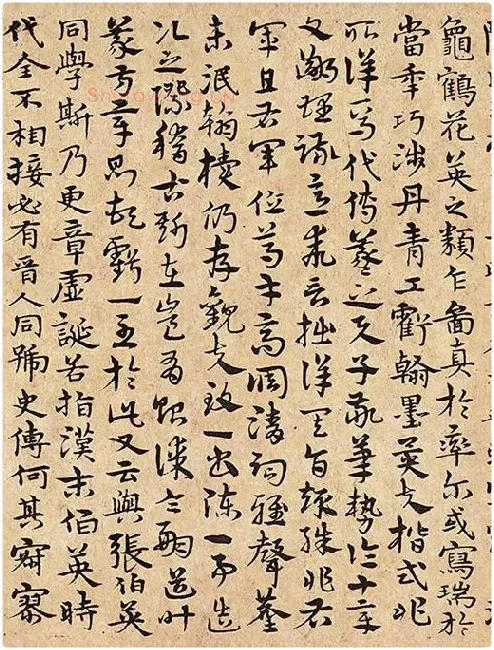 龜鶴花英之類乍圖真於率尔或寫瑞於
當年巧涉丹青工虧翰墨異夫楷式非
所詳焉代傳羲之与子敬筆勢論十章
文鄙理疎意乖言拙詳其旨趣殊非右
軍且右軍位重才高調清詞雅聲塵
未泯翰牘仍存觀夫致一書陳一事造
次之際稽古斯在豈有貽謀令嗣道叶
義方章則頓虧一至於此又云與張伯英
同學斯乃更章虛誕若指漢末伯英時
代全不相接必有晉人同號史傳何其寂寥